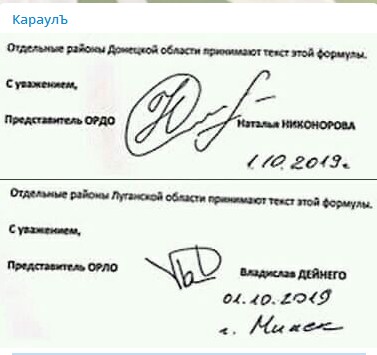 КараулЪ
Отдельные районы Донецкой области принимают текст этой формулы.
С уважением,
Представитель ОРДО
Наталья НИКОНОРОВА
1.10.2019г.
Отдельные районы Луганской области принимают текст этой формулы.
С уважением,
Представитель ОРЛО
Владислав ДЕЙНЕГО
01.10.2019
г. Минск